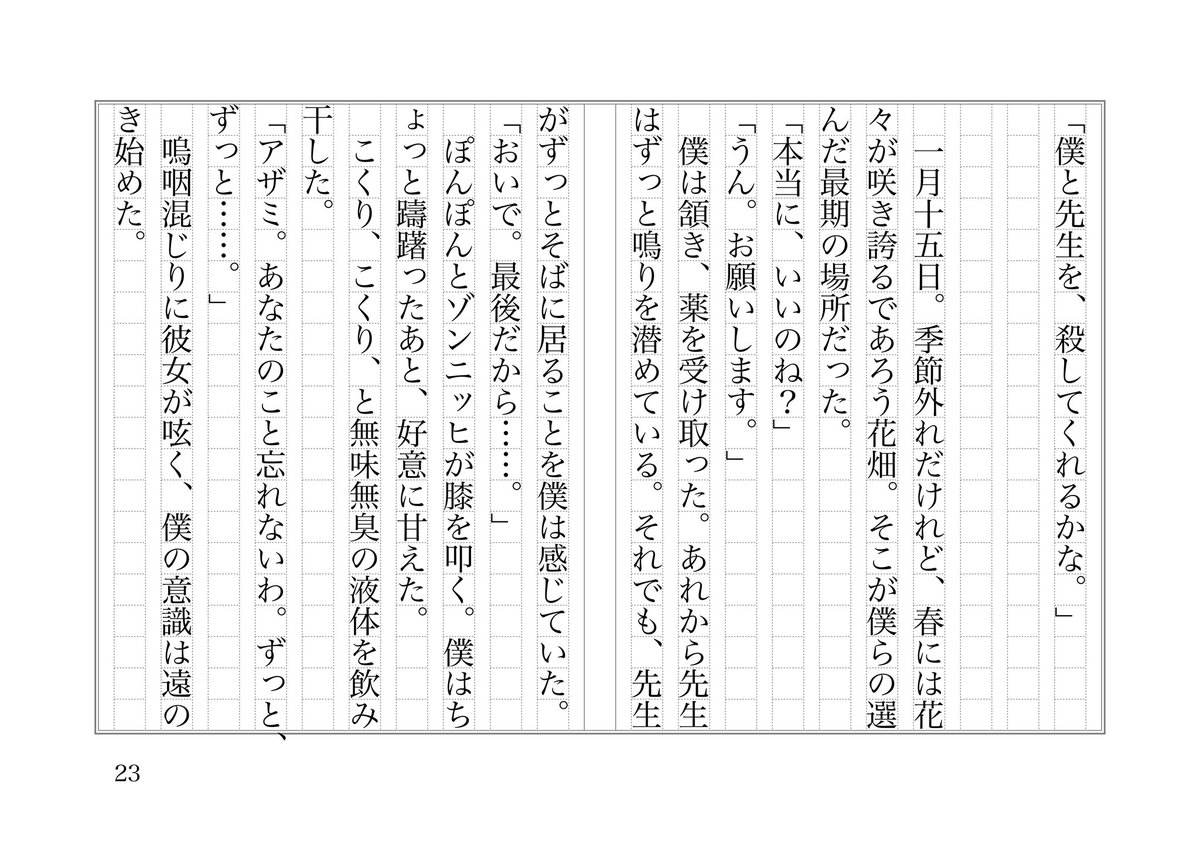 「僕と先生を、殺してくれるかな。」
　一月十五日。季節外れだけれど、春には花
々が咲き誇るであろう花畑。そこが僕らの選
んだ最期の場所だった。
「本当に、いいのね？」
「うん。お願いします。」
　僕は頷き、薬を受け取った。あれから先生
はずっと鳴りを潜めている。それでも、先生
がずっとそばに居ることを僕は感じていた。
「おいで。最後だから……。」
　ぽんぽんとゾンニッヒが膝を叩く。僕はち
ょっと躊躇ったあと、好意に甘えた。
　こくり、こくり、と無味無臭の液体を飲み
干した。
「アザミ。あなたのこと忘れないわ。ずっと、
ずっと……。」
　嗚咽混じりに彼女が呟く、僕の意識は遠の
き始めた。
23